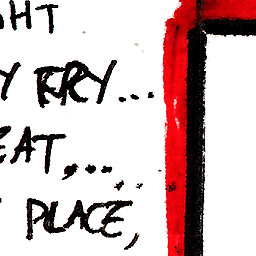 GHT
Y FRY...
EAT,...
PLACE,